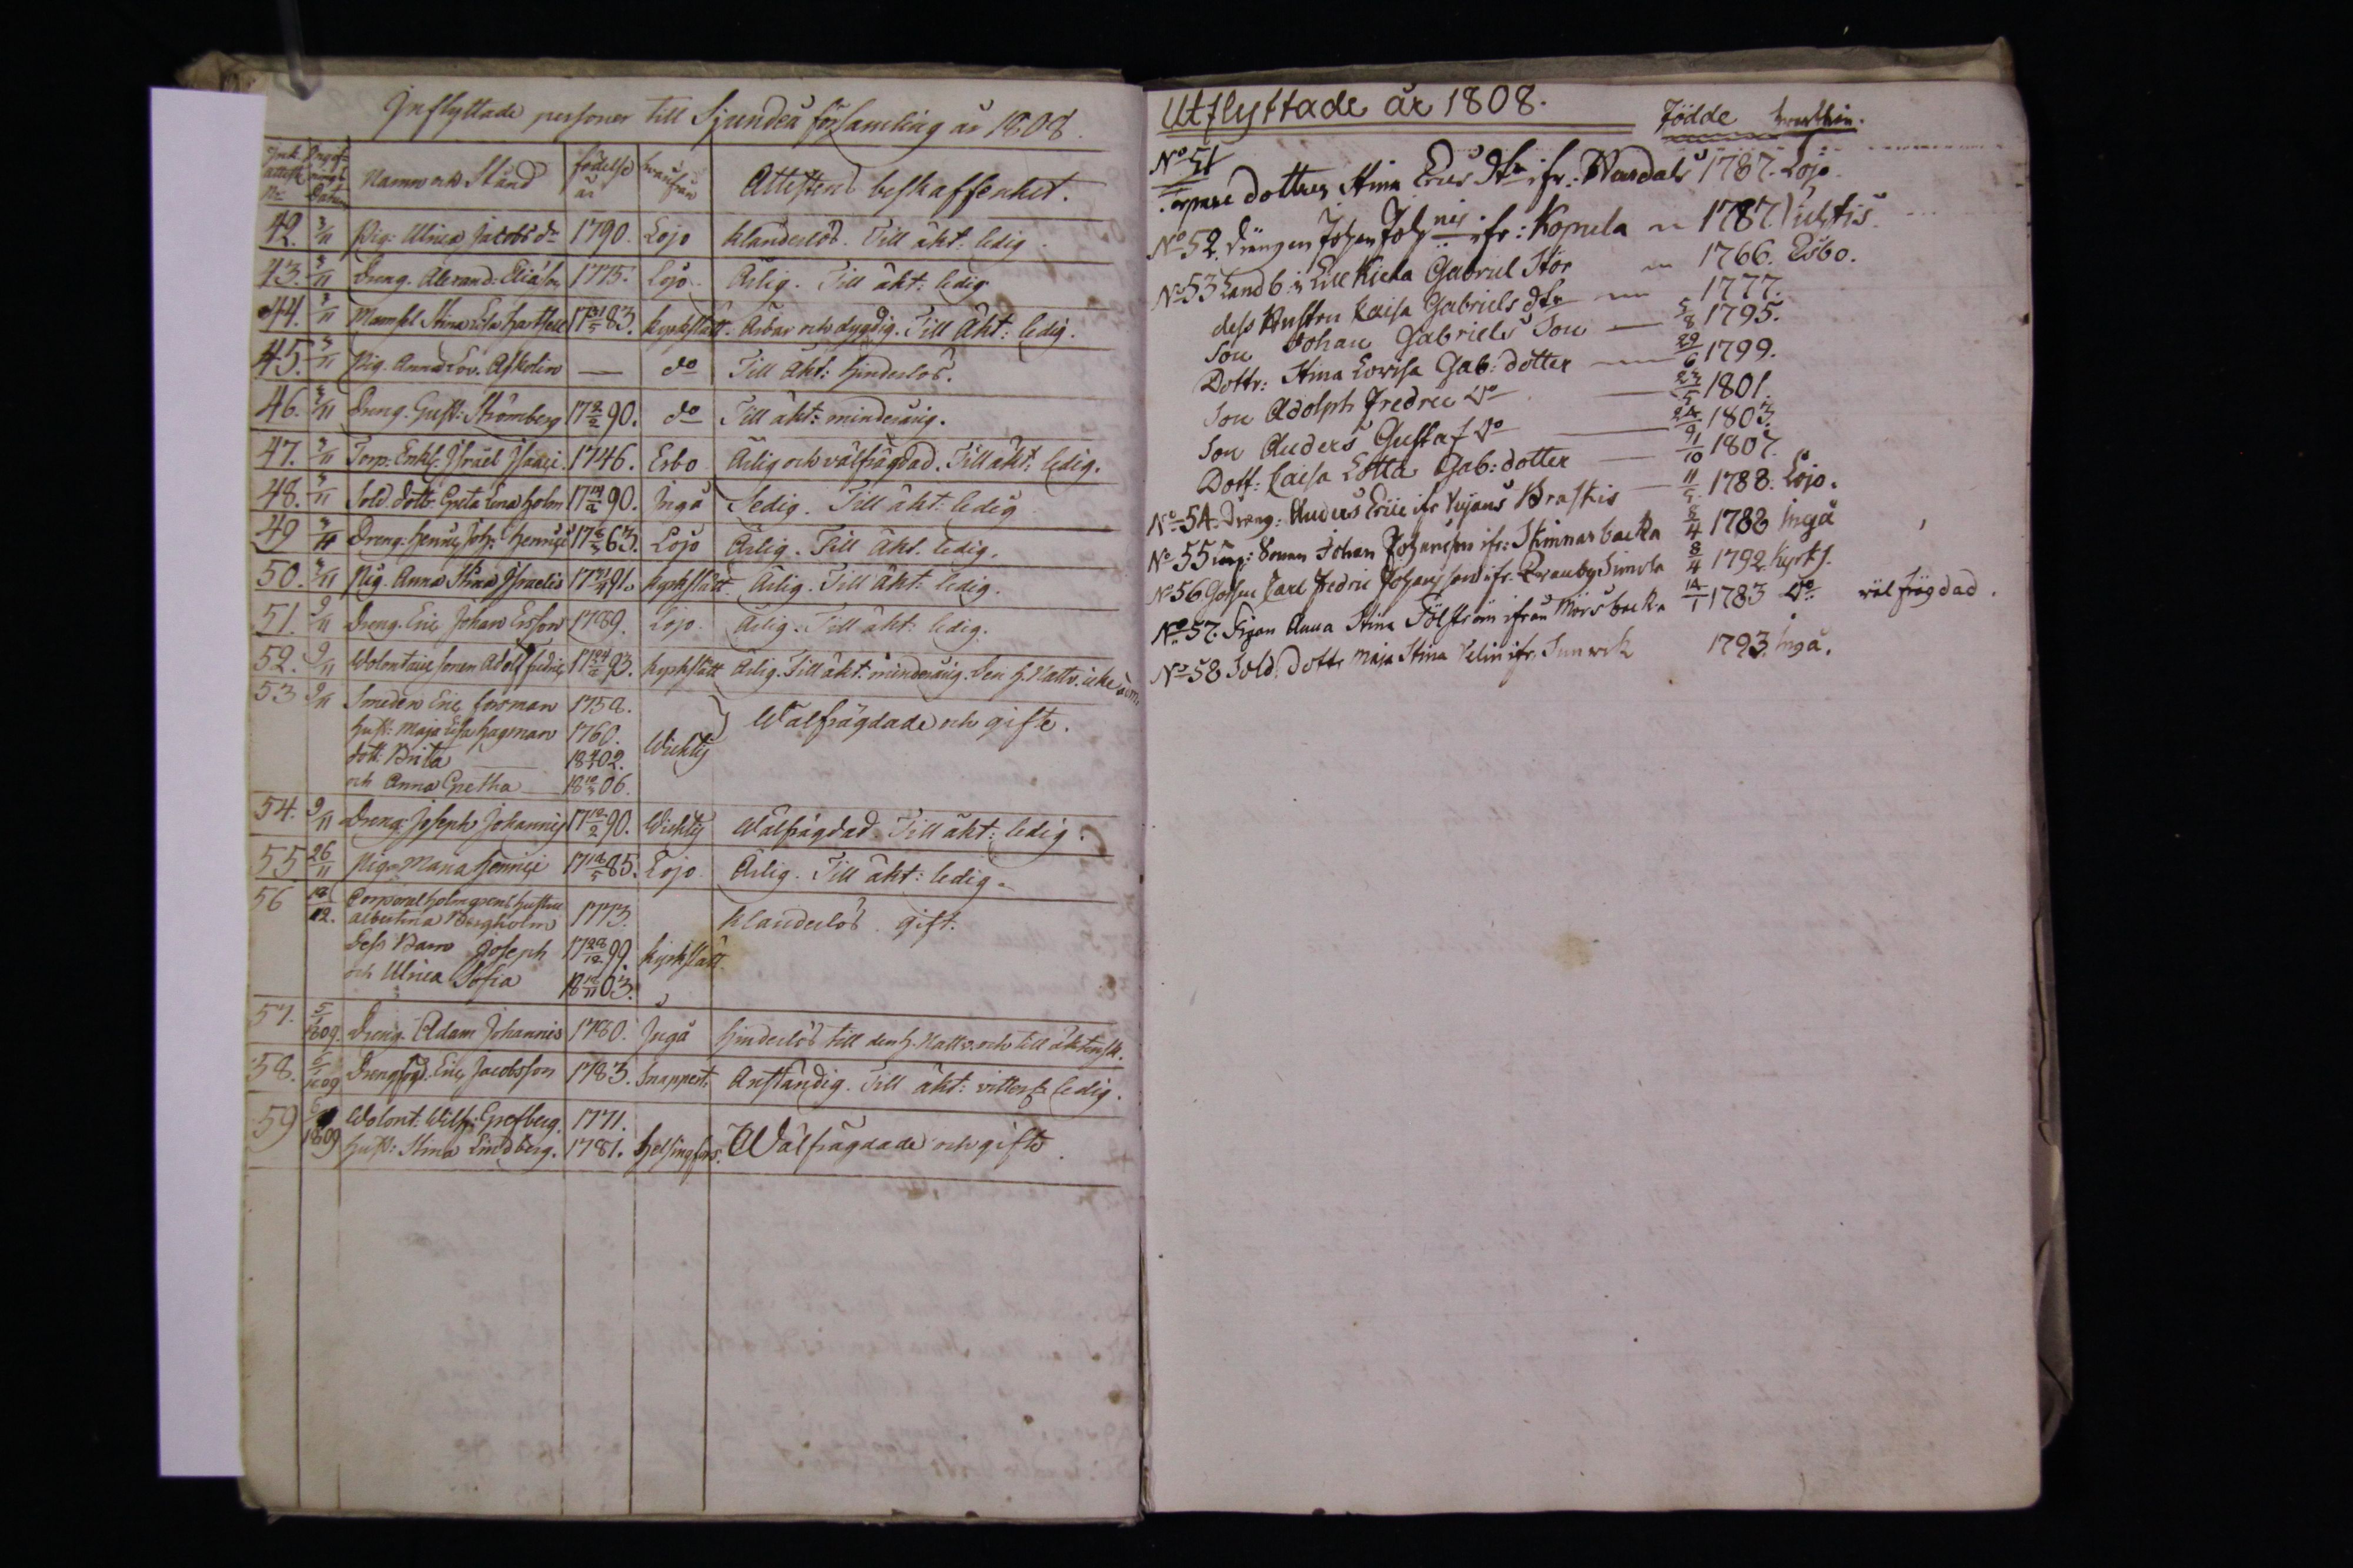 Inflyttade personer till Sjundeå församling år 1808.
Namn och Stånd födelse år hvarifrån Attestens beskaffenhet.
42. 3/11 Pig: Ulrica Jacobs dr 1790. Lojo klanderlös. Till äkt: ledig.
43. 3/11 Dreng. Alexand: Eliäson 1775. Lojo. Ärlig. Till äkt: ledig.
44. 3/11 Mamsel Stina Lisa 1783. kyrkslätt. Ärbar och dygdig. Till Äkt: ledig.
45. 3/11 Pig. Anna Lov. Askolin — do Till Äkt: hinderlös.
46. 3/11 Dreng. Gust: Strömberg 17 2/2 90. do Till äkt: minderårig.
47. 3/11 Torp. Enkl. Israel Isaaci. 1746. Esbo Ärlig och välfrägdad. Till äkt: ledig.
48. 3/11 Sold. dottr Greta Lena holm 1790. Ingå Sedig. Till äkt: ledig
49 3/11 Dreng. Henric Joh: Henrici 1763. Lojo Ärlig. Till Äkt. ledig.
50. 3/11 Pig. Anna Stina Israelis 1791. kyrkslätt. Ärlig. Till Äkt: ledig.
51. 9/11 Dreng. Eric Johan Ersson 1789. Lojo. Ärlig. Till äkt: ledig.
52. 9/11 Volontaire sonen Adolf fredric 1793. kyrkslätt Ärlig. Till äkt: minderårig. Den h. Nattv. icke
53 9/11 Smeden Eric forsman 1758.
hust: Maja Lisa hagman 1760. Wälfrägdade och gifte.
dott: Brita 1802. Wichtis
och Anna Gretha 1806.
54. 9/11 Dreng: Joseph Johannis 1790. Wichtis Wälfrägdad. Till äkt: ledig.
55 26/11 Pigan Maria Henrici 1785. Lojo. Ärlig. Till äkt: ledig.
56 12. Corporal holmgrens hustru
albertina Bergholm 1773. klanderlös gift.
Dess Barn Joseph 17 28/12 99. kyrkslätt.
och Ulrica Sofia 1803.
57. 5/1 1809. Dreng. Adam Johannis 1780. Ingå hinderlös till den h. Nattv. och till äktensk.
58. 5/1 1809 Eric Jacobsson 1783. Snappert. Anständig. Till äkt: ledig.
59 1809 Wolont. Wilh: Grefberg. 1771.
hust: Stina Lindberg. 1781. helsingfors. Wälfrägdade och gifte.
Utflyttade år 1808. Födde hvarthin.
No 51
Torpare dottren Stina Erics dtr ifr: 1787. Lojo.
No 52 Drängen Johan Joh nis ifr: Kopula 1787. Vichtis.
No 53 Landb: Gabriel Stor 1766. Esbo.
dess Hustru Kaisa Gabriels dtr 1777.
Son Johan Gabriels Son 5/8 1795.
Dottr: Stina Lovisa Gab: dotter 29/6 1799.
Son Adolph Fredric Do 23/5 1801.
Son Anders Gustaf Do 24/9 1803.
Dott: Caisa Lotta Gab: dotter 1/10 1807.
No 54. Dräng: Anders Erici ifr 11/5 1788. Lojo.
No 55 Sonen Johan Johansson ifr: Skinnarbacka 8/4 1788 Ingå
No 56 Gossen Carl Fredric Johansson ifr. 8/4 1792. Kyrks.
No 57. Pigan Anna Stina ifrån Mörsbacka 14/1 1783 Do välfrägdad.
No 58 Sold. Dottr Maja Stina ifr. 1793. Ingå.